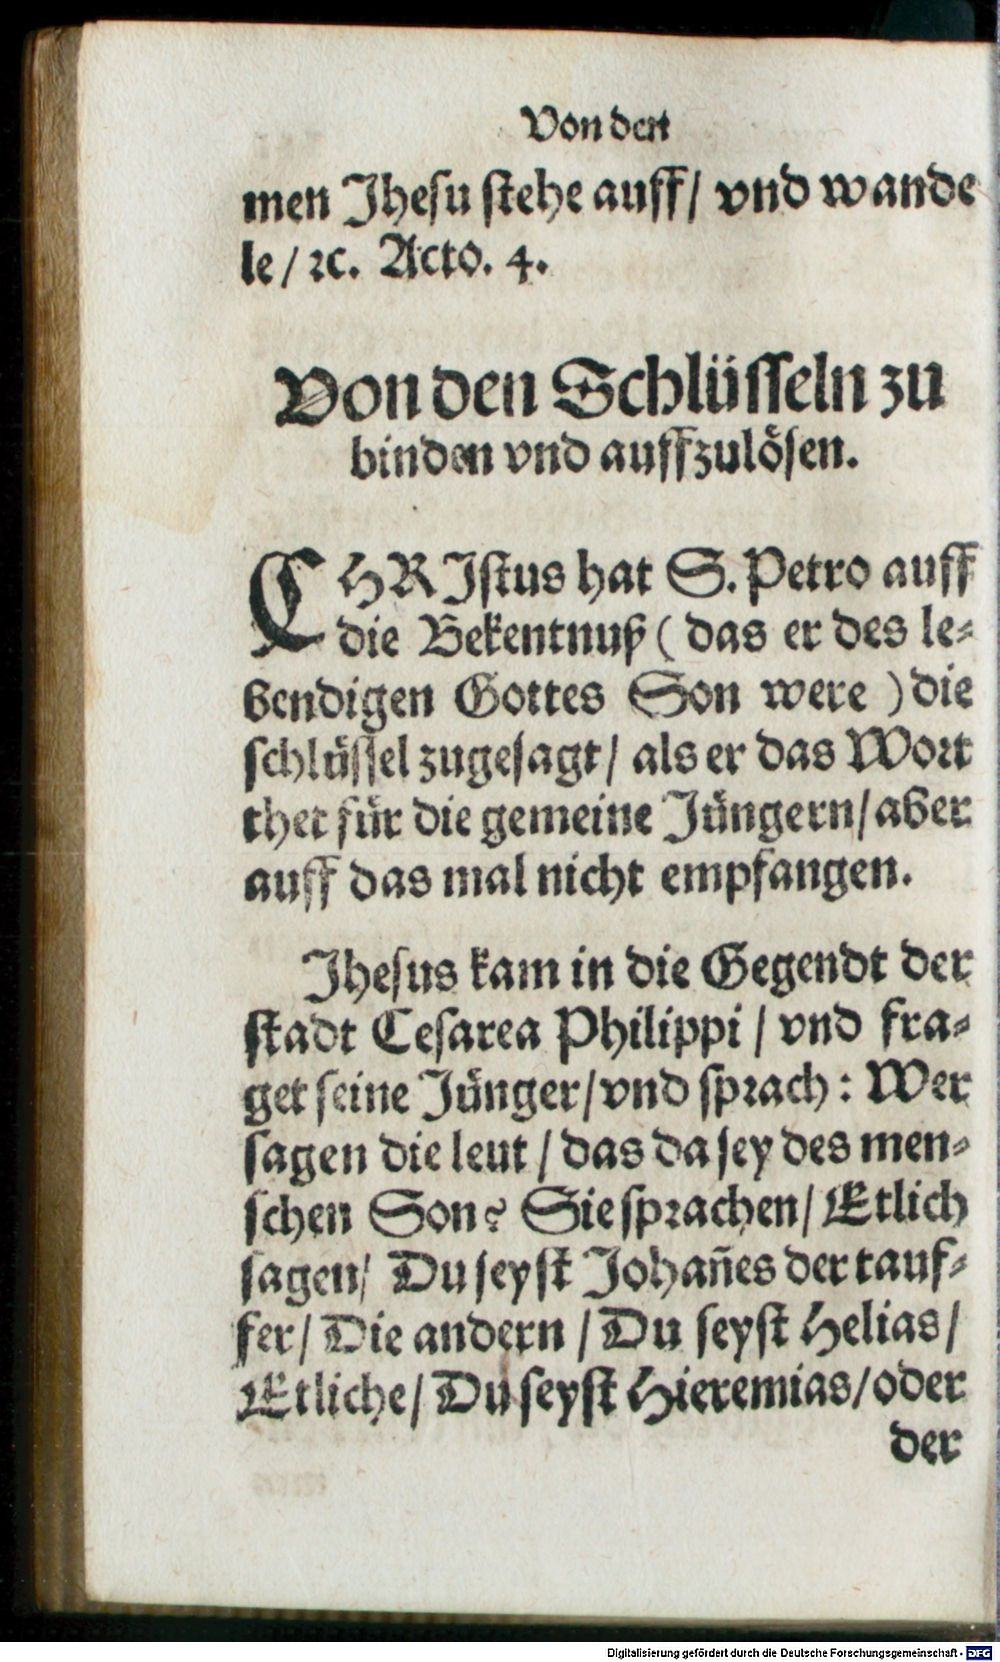 Von den
men Jhesu stehe auff/ vnd wande
le/ ꝛc. Acto. 4.
Von den Schlüsseln zu
binden vnd auffzulösen.
CHRJstus hat S. Petro auff
die Bekentnuß (das er des le-
bendigen Gottes Son were) die
schlüssel zugesagt/ als er das Wort
thet für die gemeine Jüngern/ aber
auff das mal nicht empfangen.
Jhesus kam in die Gegendt der
stadt Cesarea Philippi/ vnd fra-
get seine Jünger/ vnd sprach: Wer
sagen die leut/ das da sey des men-
schen Son? Sie sprachen/ Etlich
sagen/ Du seyst Johañes der tauf-
fer/ Die andern/ Du seyst Helias/
Etliche/ Du seyst Hieremias/ oder
der
Digitalisierung gefördert durch die Deutsche Forschungsgemeinschaft - DFG